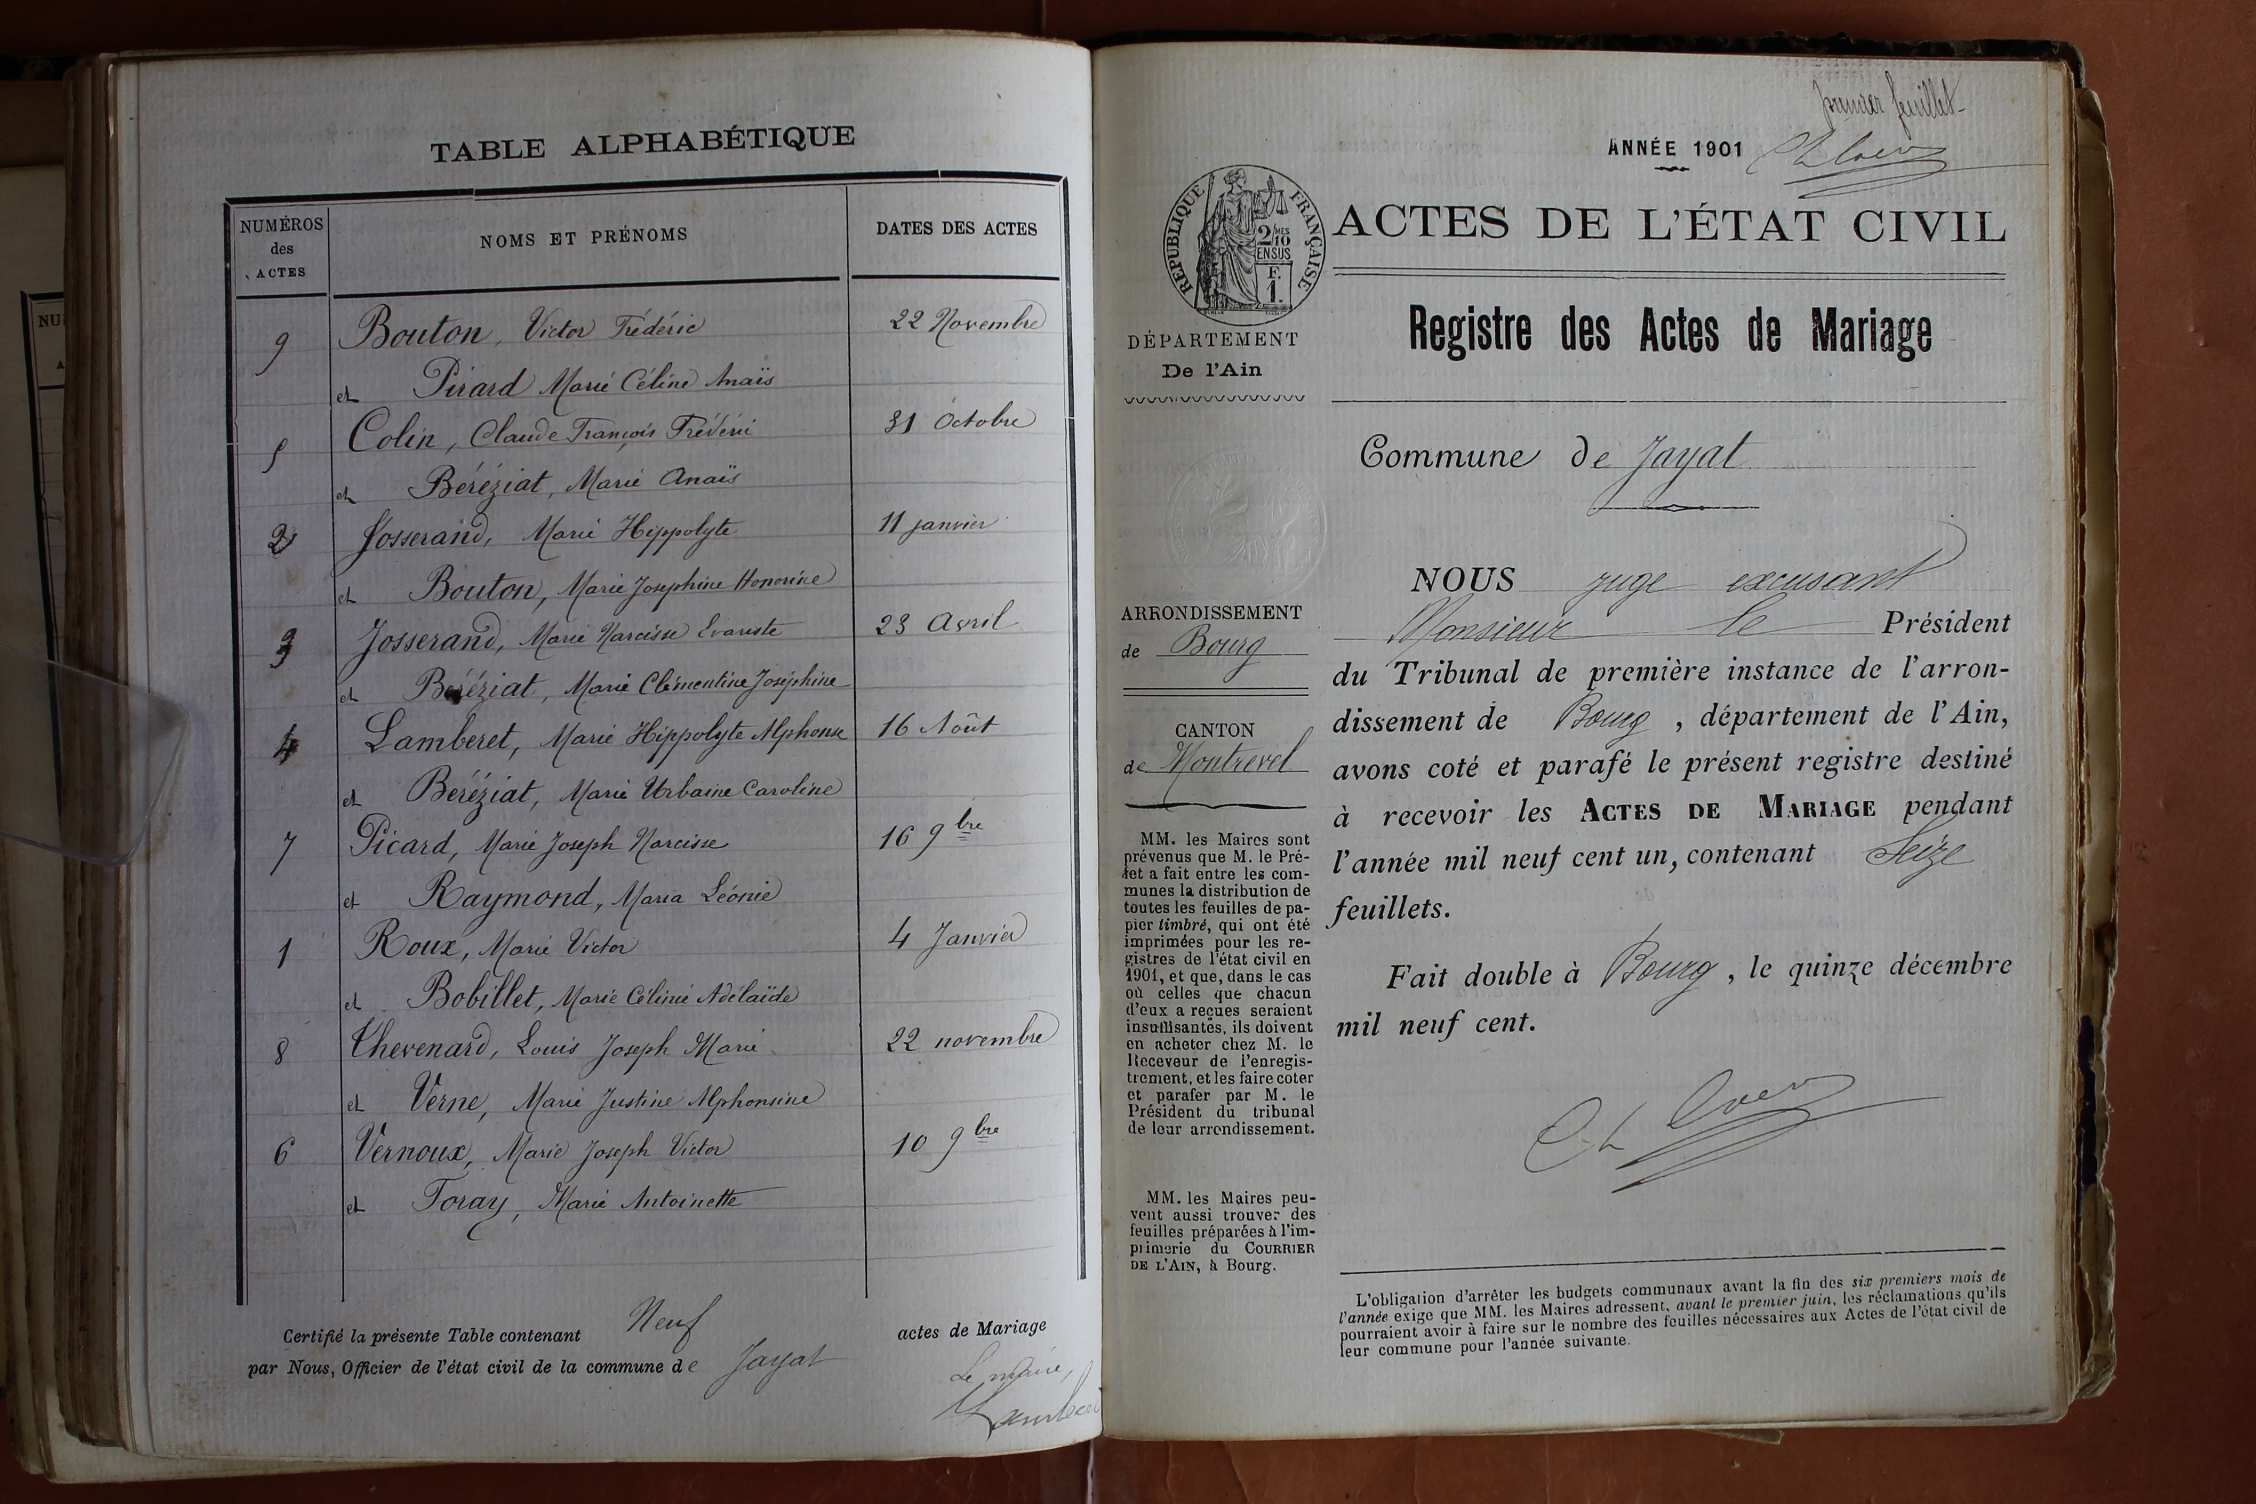 TABLE ALPHABÉTIQUE
NUMÉROS
des
ACTES
NOMS ET PRÉNOMS
DATES DES ACTES
9 Bouton, Victor Frédéric 22 Novembre
et Pirard Marie Céline Anaïs
5 Colin, Claude François Frédéric 31 Octobre
et Béréziat, Marie Anaïs
2 Josserand, Marie Hippolyte 11 janvier
et Bouton, Marie Josephine Honorine
3 Josserand, Marie Narcisse Evariste 23 Avril
et Béréziat, Marie Clémentine Joséphine
4 Lamberet, Marie Hippolyte Alphonse 16 Août
et Béréziat, Marie Urbaine Caroline
7 Picard, Marie Joseph Narcisse 16 9bre
et Raymond, Maria Léonie
1 Roux, Marie Victor 4 Janvier
et Bobillet, Marie Célinie Adélaïde
8 Chevenard, Louis Joseph Marie 22 novembre
et Verne, Marie Justine Alphonsine
6 Vernoux, Marie Joseph Victor 10 9bre
et Foray, Marie Antoinette
Certifié la présente Table contenant Neuf actes de Mariage
par Nous, Officier de l'état civil de la commune de Jayat
Le maire,
premier feuillet
ANNÉE 1901
RÉPUBLIQUE FRANÇAISE
2/10
MES
EN SUS
F.
1.
ACTES DE L'ÉTAT CIVIL
DÉPARTEMENT
De l'Ain
Registre des Actes de Mariage
Commune de Jayat
ARRONDISSEMENT
de Bourg
CANTON
de Montrevel
MM. les Maires sont
prévenus que M. le Pré-
fet a fait entre les com-
munes la distribution de
toutes les feuilles de pa-
pier timbré, qui ont été
imprimées pour les re-
gistres de l'état civil en
1901, et que, dans le cas
où celles que chacun
d'eux a reçues seraient
insuffisantes, ils doivent
en acheter chez M. le
Receveur de l'enregis-
trement, et les faire coter
et parafer par M. le
Président du tribunal
de leur arrondissement.
MM. les Maires peu-
vent aussi trouver des
feuilles préparées à l'im-
primerie du COURRIER
DE L'AIN, à Bourg.
NOUS juge excusant
Monsieur le Président
du Tribunal de première instance de l'arron-
dissement de Bourg, département de l'Ain,
avons coté et parafé le présent registre destiné
à recevoir les ACTES DE MARIAGE pendant
l'année mil neuf cent un, contenant Seize
feuillets.
Fait double à Bourg, le quinze décembre
mil neuf cent.
L'obligation d'arrêter les budgets communaux avant la fin des six premiers mois de
l'année exige que MM. les Maires adressent, avant le premier juin, les réclamations qu'ils
pourraient avoir à faire sur le nombre des feuilles nécessaires aux Actes de l'état civil de
leur commune pour l'année suivante.